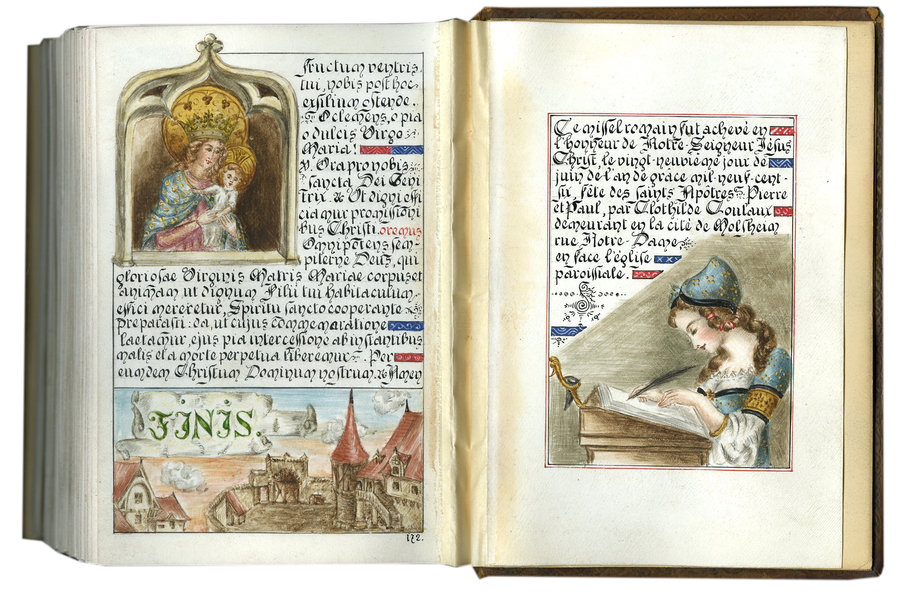 fructum ventris
tui, nobis post hoc
exsilium ostende.
O clemens, o pia
o dulcis Virgo
Maria!
V. Ora pro nobis
sancta Dei Geni
trix. & Ut digni effi
ciamur promissioni
bus Christi. oremus
Omnipotens sem-
piterne Deus, qui
gloriosae Virginis Matris Mariae corpus et
animam ut dignum Filii tui habitaculum
effici mereretur, Spiritu sancto cooperante
preparasti: da, ut cujus commemoratione
laetamur, ejus pia intercessione ab instantibus
malis et a morte perpetua liberemur. Per
eumdem Christum Dominum nostrum. & Amen
FINIS.
172.
Ce missel romain fut achevé en
l'honneur de Notre-Seigneur Jésus
Christ, le vingt-neuvième jour de
juin de l'an de grâce mil-neuf-cent-
six, fête des saints Apôtres Pierre
et Paul, par Clothilde Coulaux
demeurant en la cité de Molsheim
rue Notre-Dame
en face l'église
paroissiale.